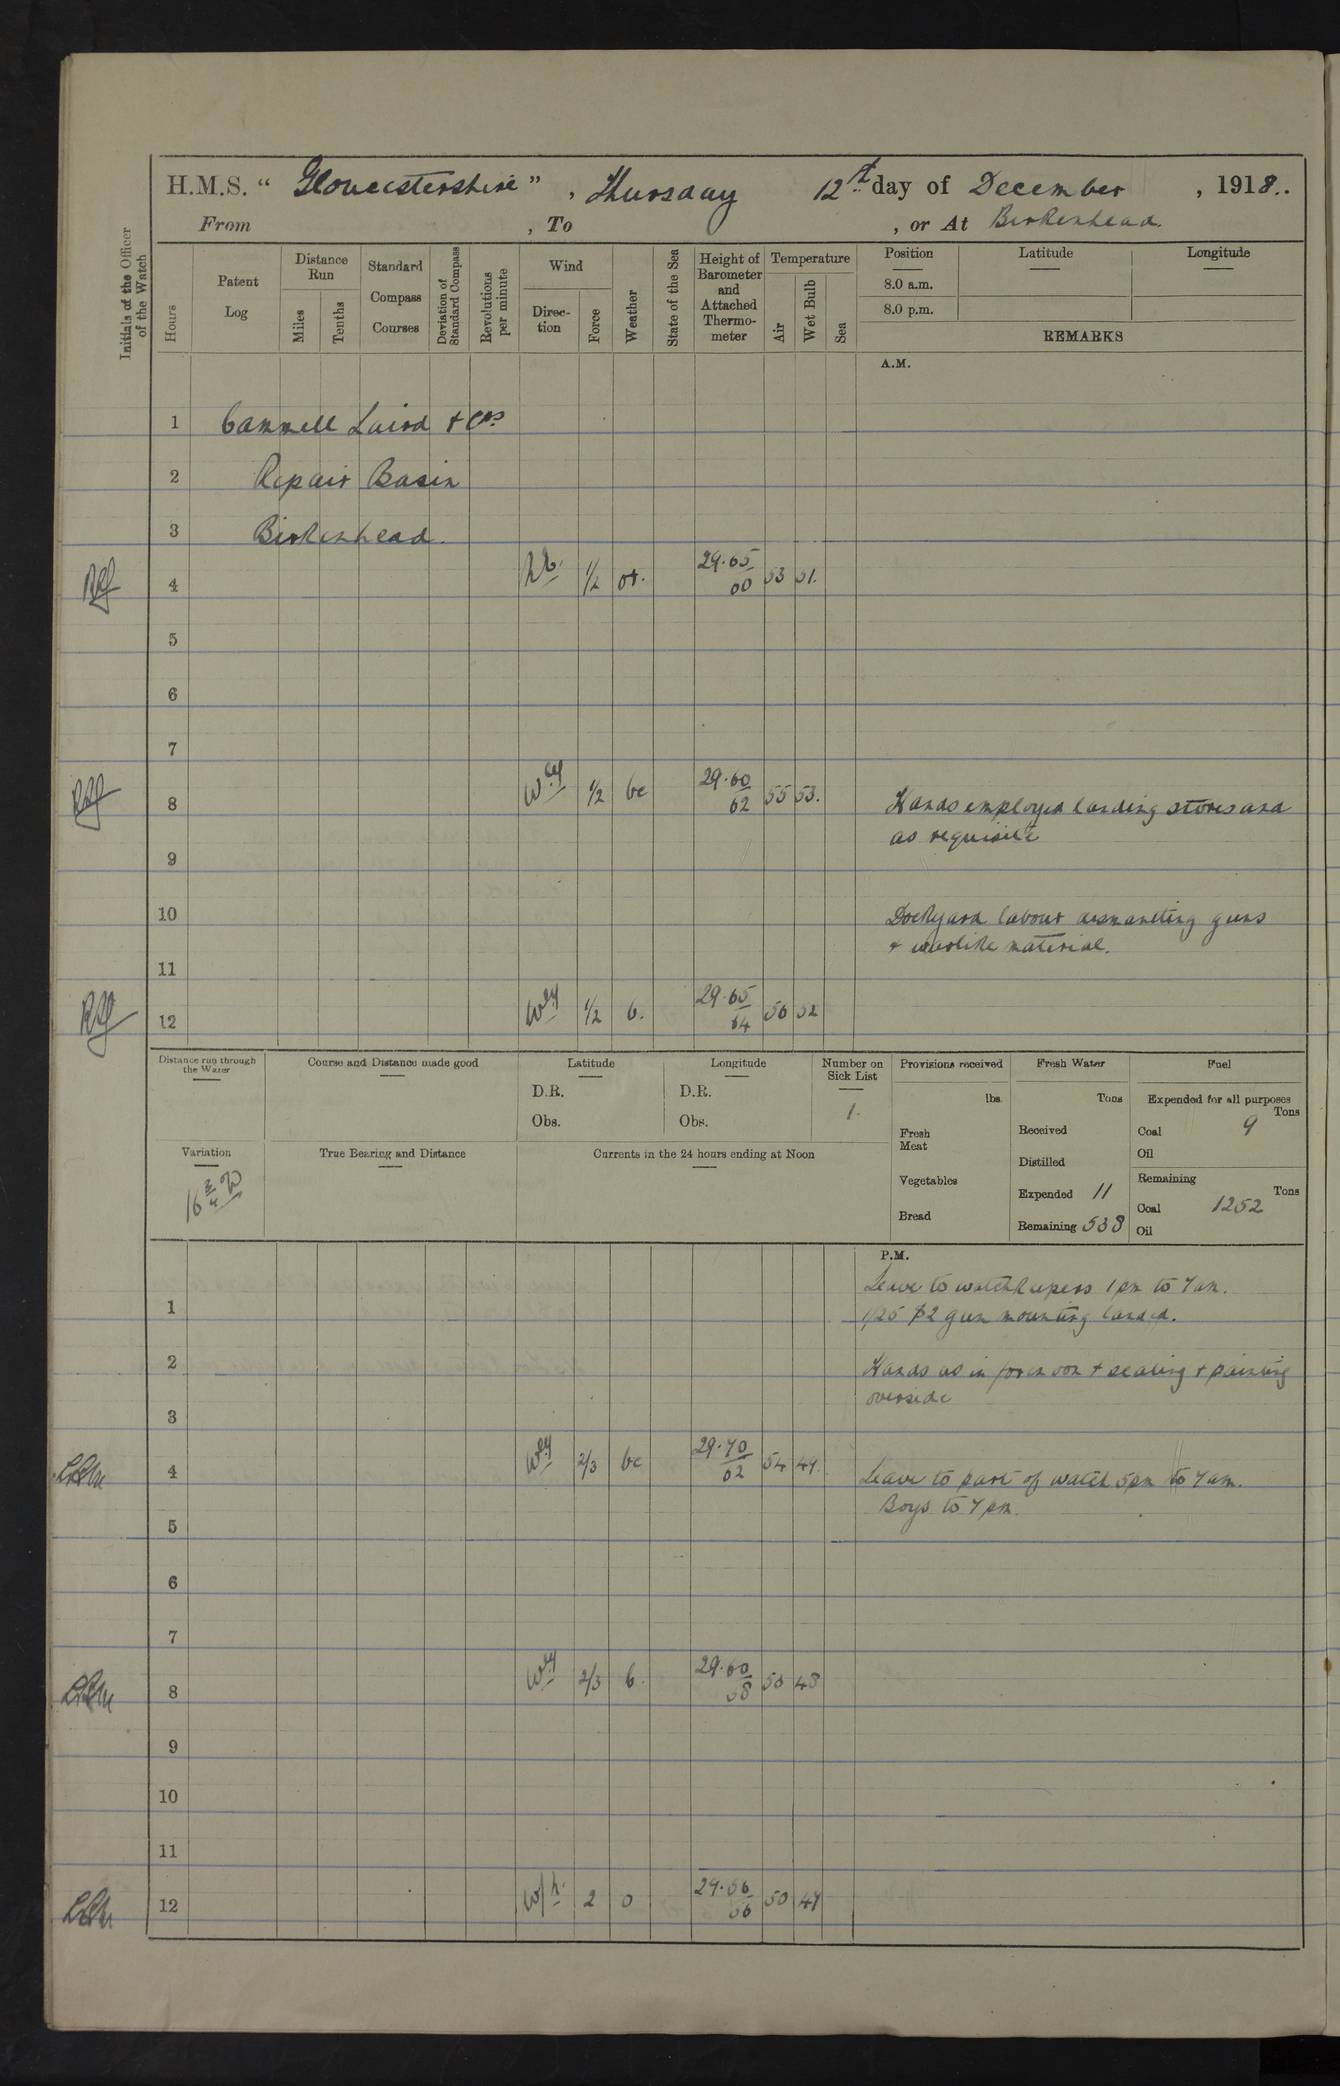 H.M.S. “ Gloucestershire ” , Thursday 12th day of December , 1918..
From , To , or At Birkenhead.
Initials of the Officer of the Watch
Hours
Patent Log
Distance Run
Miles
Tenths
Standard Compass Courses
Deviation of Standard Compass
Revolutions per minute
Wind
Direction
Force
Weather
State of the Sea
Height of Barometer and Attached Thermometer
Temperature
Air
Wet Bulb
Sea
Position Latitude Longitude
8.0 a.m.
8.0 p.m.
REMARKS
A.M.
1 Cammell Laird & Cos
2 Repair Basin
3 Birkenhead.
4 1/2 29.65 53 51.
5
6
7
8 Wly 1/2 bc 29.60 62 55 53. Hands employed landing stores and
as requisite
9
10 Dockyard labour dismantling guns
& warlike material.
11
12 Wly 1/2 b. 29.65 64 56 52
Distance run through the Water
Course and Distance made good
Latitude
D.R.
Obs.
Longitude
D.R.
Obs.
Number on Sick List
1.
Provisions received
lbs.
Fresh Meat
Vegetables
Bread
Fresh Water
Tons
Received
Distilled
Expended 11
Remaining 538
Fuel
Expended for all purposes
Tons
Coal 9
Oil
Remaining
Tons
Coal 1252
Oil
Variation
16 3/4 W
True Bearing and Distance
Currents in the 24 hours ending at Noon
P.M.
Leave to watchkeepers 1 pm to 7 am.
1 gun mounting landed.
2 Hands as in forenoon & scaling & painting
overside
3
4 Wly 2/3 bc 29.70 62 54 49. Leave to part of watch 5 pm to 7 am.
Boys to 7 pm.
5
6
7
8 Wly 2/3 b. 29.60 58 50 48
9
10
11
12 W/N 2 o 29.56 56 50 47